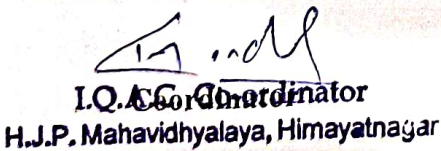 I.Q.A.C. Co-ordinator
Coordinator
H.J.P. Mahavidhyalaya, Himayatnagar